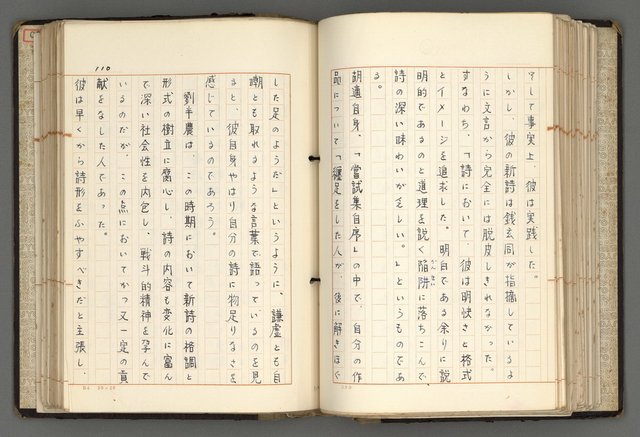 そして事実上、彼は実践した。
しかし、彼の新詩は銭玄同が指摘しているよ
うに文言から完全には脱皮しきれなかった。
すなわち、「詩において、彼は明快さと格式
とイメージを追求した。明白である余りに説
明的であるのと道理を説く陥阱に落ちこんで
詩の深い味わいが乏しい。」というものであ
る。
胡適自身、「嘗試集自序」の中で、自分の作
品について「纏足をした人が、後に解きほぐ
した足のようだ」というように、謙虚とも自
嘲とも取れるような言葉で語っているのを見
ると、彼自身やはり自分の詩に物足りなさを
感じているのであろう。
劉半農は、この時期において新詩の格調と
形式の樹立に腐心し、詩の内容も変化に富ん
で深い社会性を内包し、戦斗的精神を孕んで
いるのだが、この点においてかつ又一定の貢
献をなした人であった。
彼は早くから詩形をふやすべきだと主張し、
110